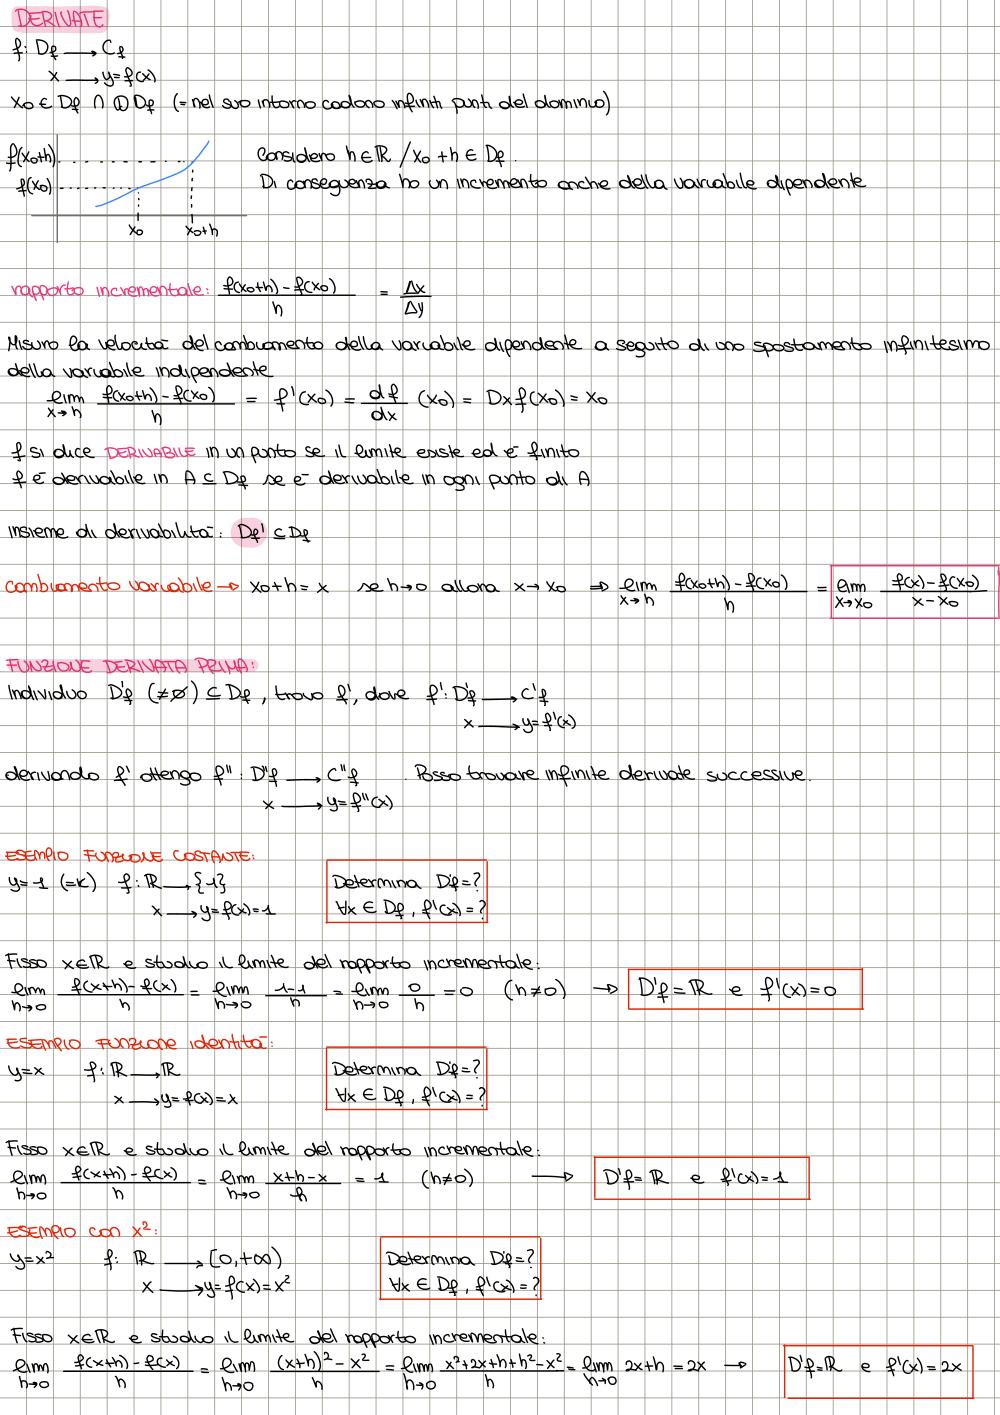 DERIVATE
f: Df → Cf
x → y=f(x)
x₀ ∈ Df ∩ 𝔻Df (= nel suo intorno cadono infiniti punti del dominio)
f(x₀+h)
f(x₀)
x₀ x₀+h
Considero h∈ℝ / x₀+h ∈ Df.
Di conseguenza ho un incremento anche della variabile dipendente
rapporto incrementale: (f(x₀+h) - f(x₀))/h = Δx/Δy
Misuro la velocità del cambiamento della variabile dipendente a seguito di uno spostamento infinitesimo
della variabile indipendente
lim x→h (f(x₀+h) - f(x₀))/h = f'(x₀) = df/dx (x₀) = Dx f(x₀) = x₀
f si dice DERIVABILE in un punto se il limite esiste ed è finito
f è derivabile in A ⊆ Df se è derivabile in ogni punto di A
insieme di derivabilità: Df' ⊆ Df
cambiamento variabile → x₀+h = x se h→0 allora x→x₀ ⇒ lim x→h (f(x₀+h) - f(x₀))/h = lim x→x₀ (f(x) - f(x₀))/(x-x₀)
FUNZIONE DERIVATA PRIMA:
Individuo D'f (≠∅) ⊆ Df, trovo f', dove f': D'f → C'f
x → y=f'(x)
derivando f' ottengo f'': D''f → C''f . Posso trovare infinite derivate successive.
x → y=f''(x)
ESEMPIO FUNZIONE COSTANTE:
y=1 (=k) f: ℝ → {1}
x → y=f(x)=1
Determina D'f=?
∀x ∈ Df, f'(x)=?
Fisso x∈ℝ e studio il limite del rapporto incrementale:
lim h→0 (f(x+h) - f(x))/h = lim h→0 (1-1)/h = lim h→0 0/h = 0 (h≠0) → D'f = ℝ e f'(x)=0
ESEMPIO FUNZIONE identità:
y=x f: ℝ → ℝ
x → y=f(x)=x
Determina D'f=?
∀x ∈ Df, f'(x)=?
Fisso x∈ℝ e studio il limite del rapporto incrementale:
lim h→0 (f(x+h) - f(x))/h = lim h→0 (x+h-x)/h = 1 (h≠0) → D'f= ℝ e f'(x)=1
ESEMPIO con x²:
y=x² f: ℝ → [0,+∞)
x → y=f(x)=x²
Determina D'f=?
∀x ∈ Df, f'(x)=?
Fisso x∈ℝ e studio il limite del rapporto incrementale:
lim h→0 (f(x+h) - f(x))/h = lim h→0 ((x+h)² - x²)/h = lim h→0 (x²+2x+h+h²-x²)/h = lim h→0 2x+h = 2x → D'f=ℝ e f'(x)=2x